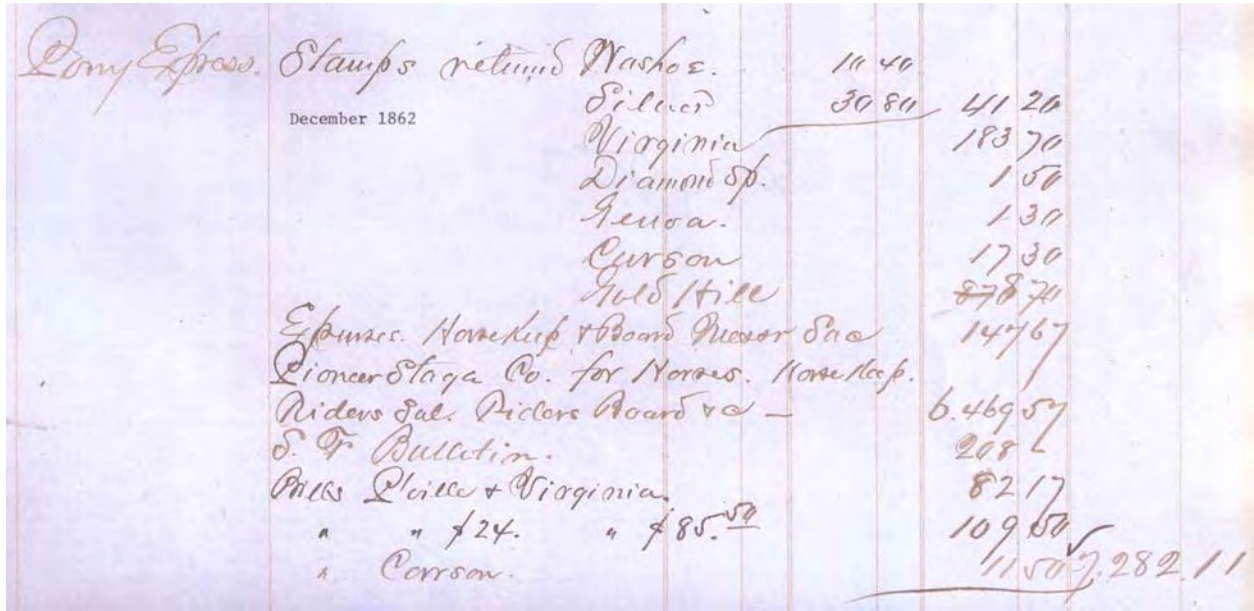 Pony Express. Stamps returnd Washoe. 10 40
Silver 30 80 41 20
December 1862
Virginia 183 70
Diamond Sp. 1 50
Genoa. 1 30
Carson 17 30
Gold Hill 87 8 70
Expenses. Horse Keep & Board Sac 147 67
Pioneer Stage Co. for Horses. Horse Keep.
Riders Sal. Riders Board &c — 6.469 57
S. F. Bulletin. 208 "
Bills Pville & Virginia. 82 17
" " $24. " $85.50 109 50
" Carrson. 11 50 ✓ 7.282.11